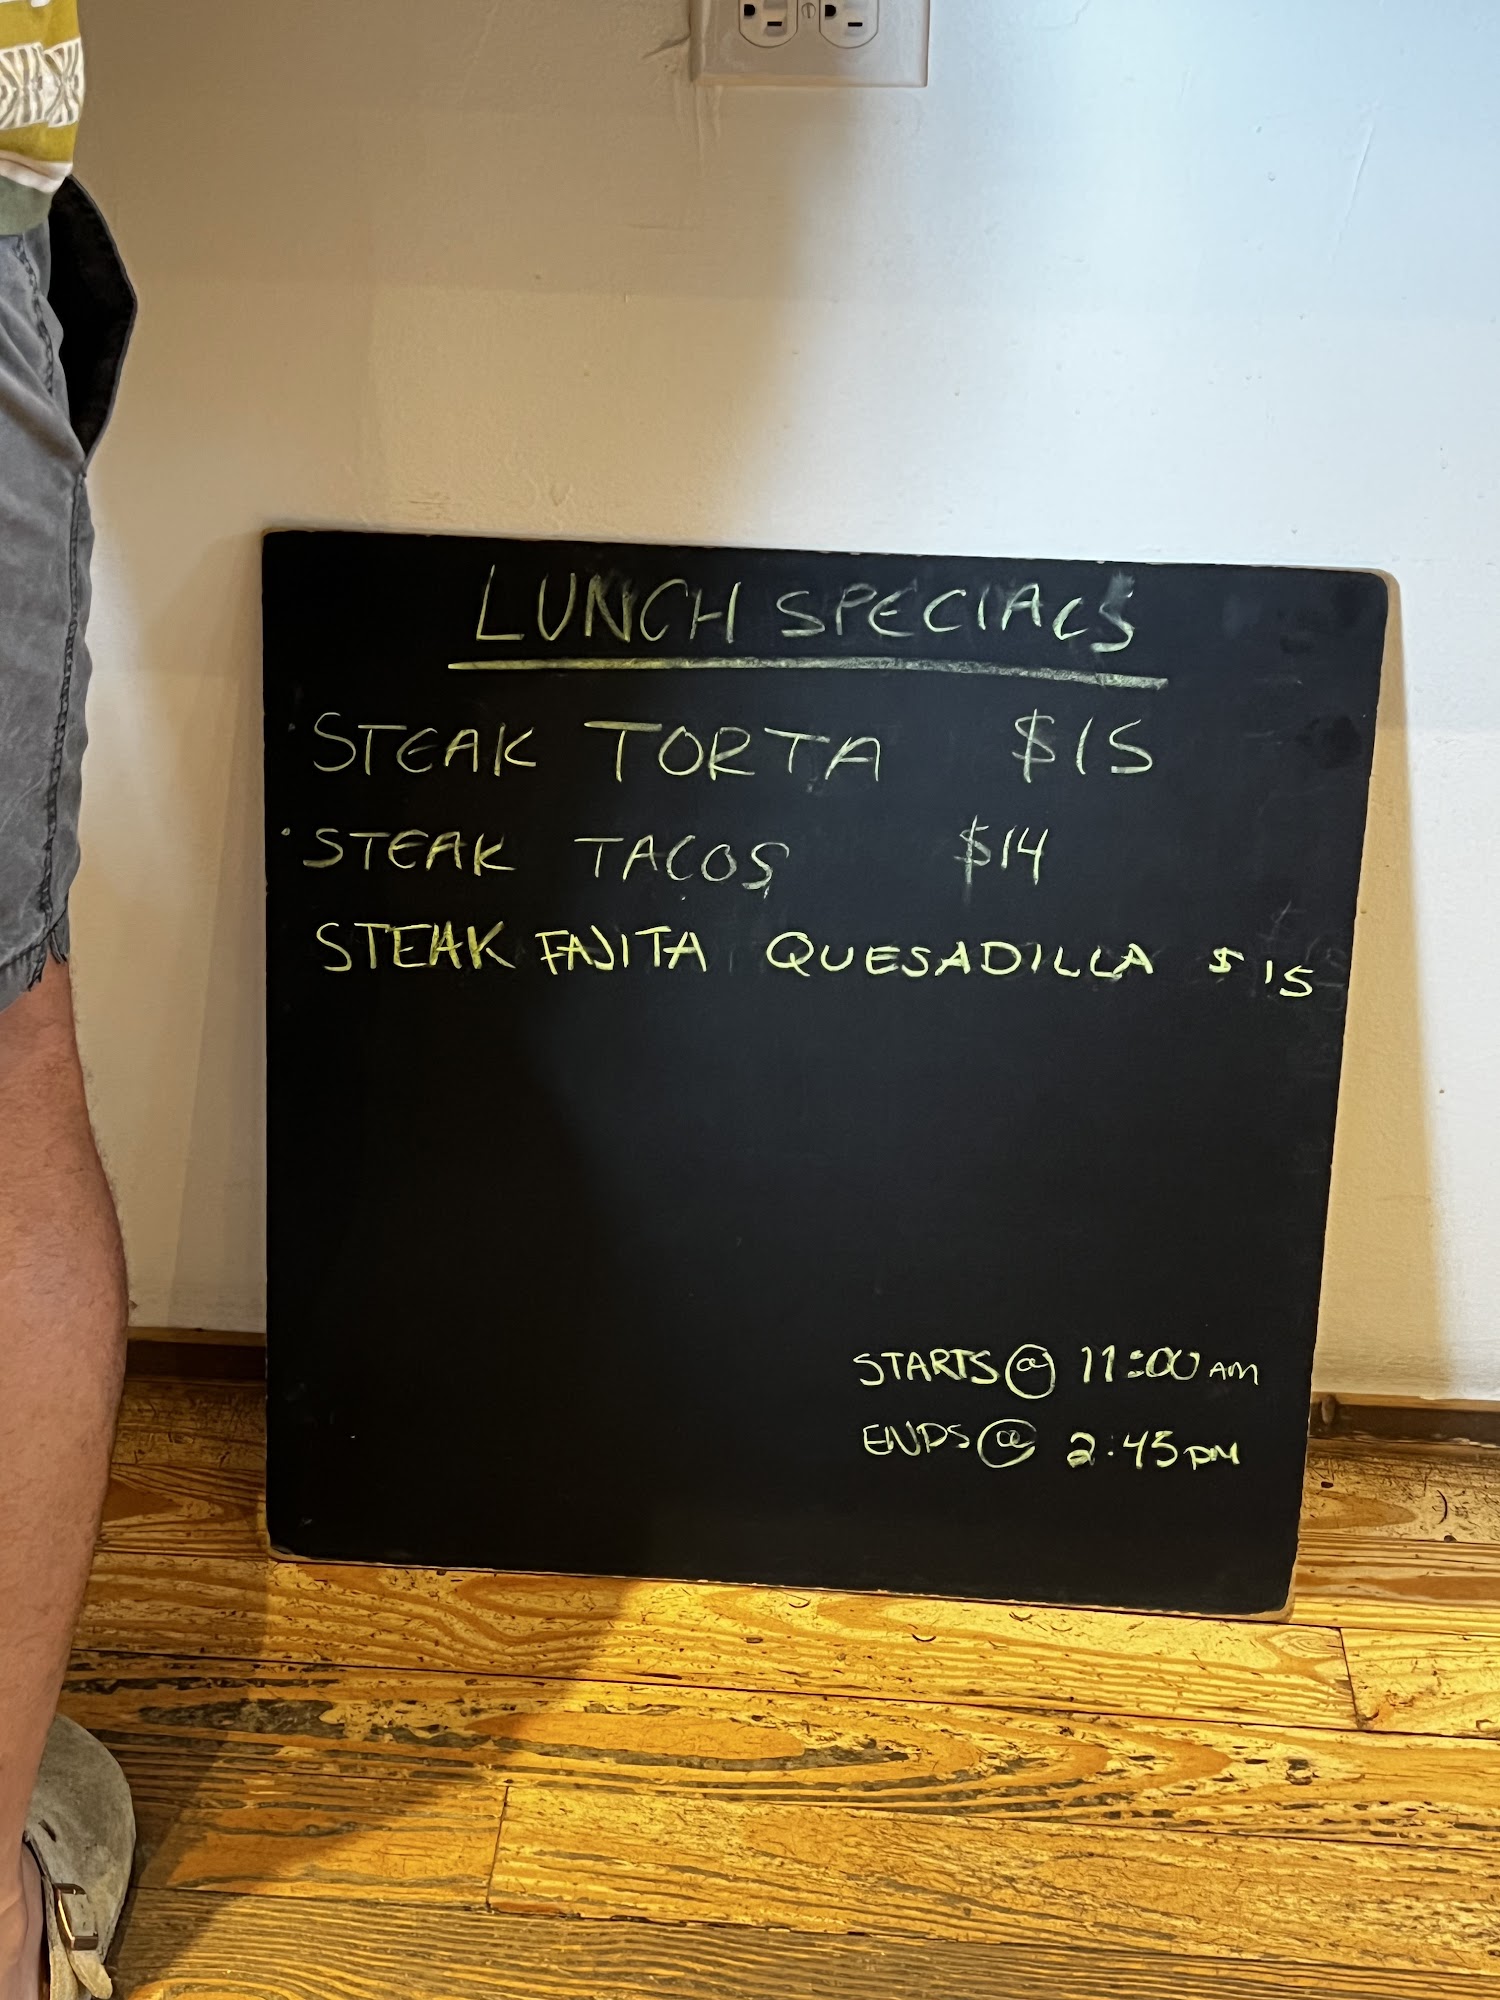 LUNCH SPECIALS
· STEAK TORTA $15
· STEAK TACOS $14
STEAK FAJITA QUESADILLA $15
STARTS @ 11:00 AM
ENDS @ 2:45 PM